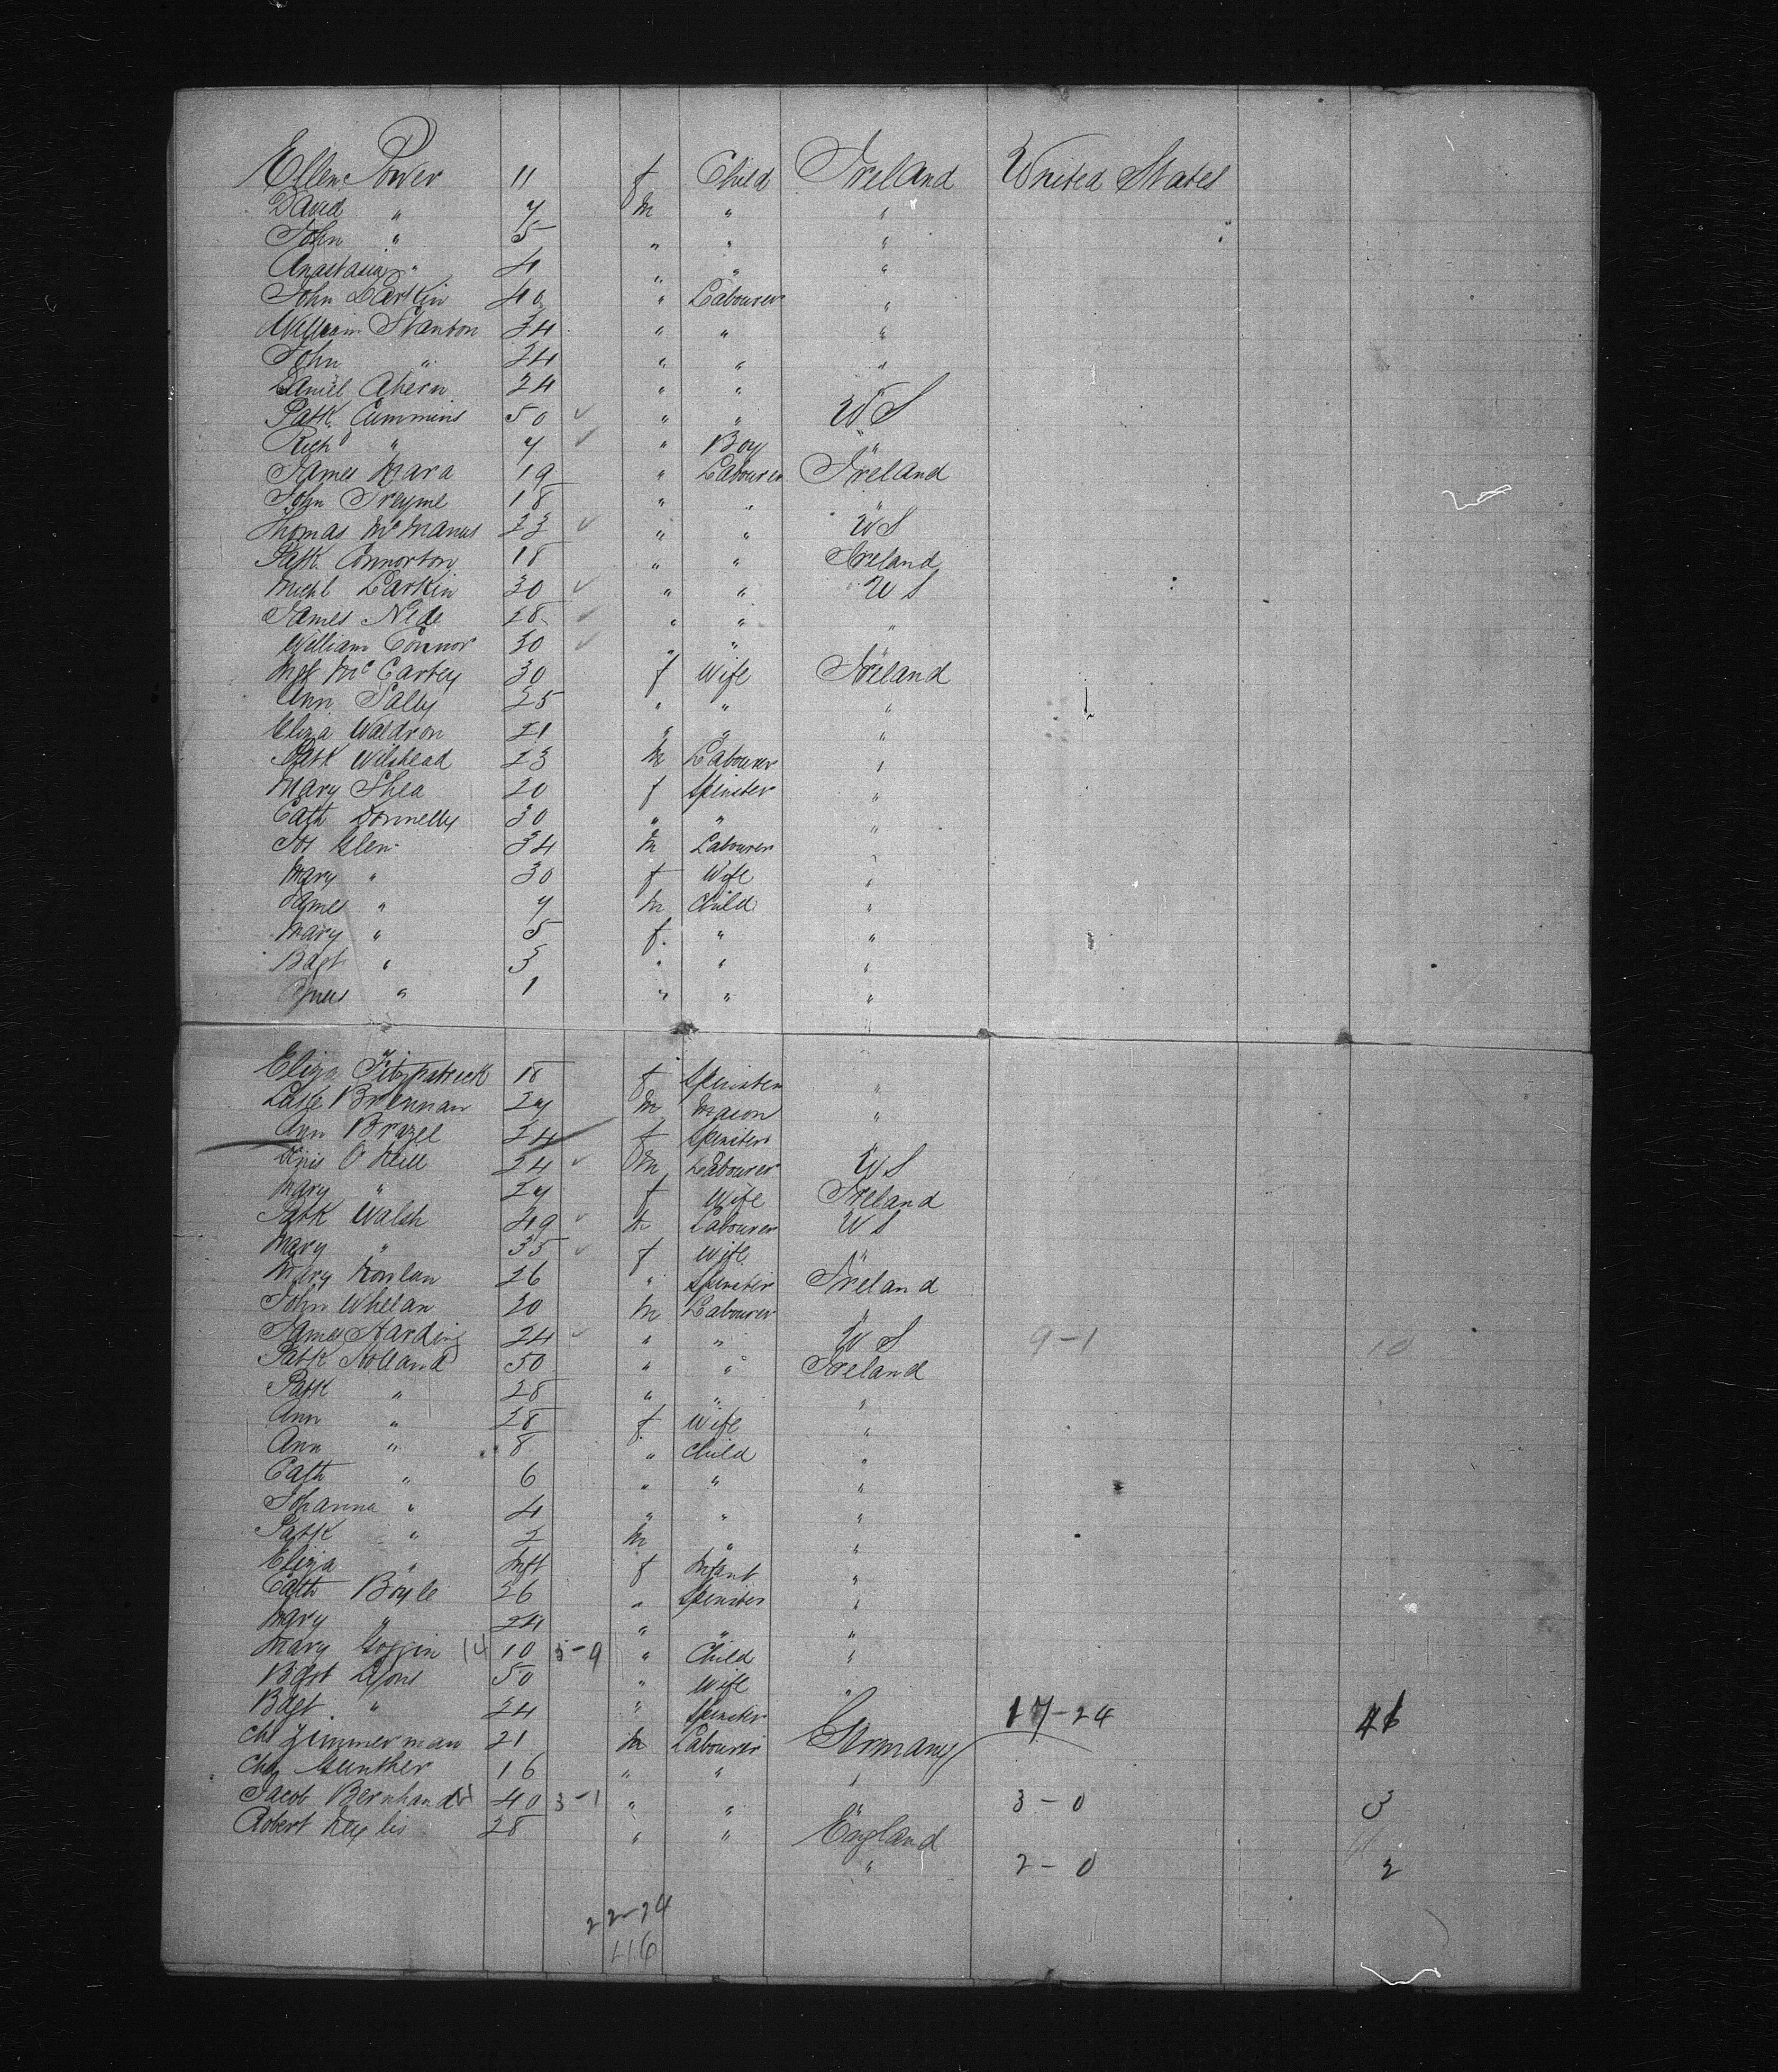 Ellen Power 11 f Child Ireland United States
David " 7 m " "
John " 5 " " "
Anastasia " 4 " " "
John Larkin 40 " Labourer "
William Stanton 34 " " "
John " 24 " " "
Daniel Ahern 24 " "
Patk Cummins 50 ✓ " " U S
Richd " 7 ✓ " Boy "
James Mara 19 " Labourer Ireland
John 18 " " "
Thomas McManus 23 ✓ " " U S
Patk Connorton 18 " " Ireland
Michl Larkin 30 ✓ " " U S
James 28 ✓ " " "
William Connor 30 ✓ " " "
Mgt McCartey 30 f Wife Ireland
Ann 25 " " "
Eliza Waldron 21 " " "
Patk 23 m Labourer "
Mary Shea 20 f Spinster "
Cath Donnelly 30 " " "
Glen 34 m Labourer "
Mary " 30 f Wife "
James " 7 m Child "
Mary " 5 f " "
Bdgt " 3 " " "
Agnes " 1 " " "
Eliza Fitzpatrick 18 f Spinster "
Brennan 27 m Mason "
Ann Brazel 24 f Spinster
Denis O'Neill 24 ✓ m Labourer U S
Mary " 27 f Wife Ireland
Patk Walsh 49 ✓ m Labourer U S
Mary " 35 ✓ f Wife "
Mary 26 " Spinster Ireland
John Whelan 20 m Labourer "
James Harding 24 ✓ " " U S 9-1 10
Patk Holland 50 " " Ireland
Patk " 28 " " "
Ann " 28 f Wife "
Ann " 8 " Child "
Cath " 6 " " "
Johanna " 4 " " "
Patk " 2 m " "
Eliza " Inft f Infant "
Cath Boyle 26 " Spinster "
Mary " 24 " " "
Mary 14 10 5-9 " Child "
Bdgt Lyons 50 " Wife "
Bdgt " 24 " Spinster 17-24 41
Chs Zimmerman 21 m Labourer Germany
Chs Gunther 16 " " "
Jacob Bernhardt 40 3-1 " " " 3-0 3
Robert 28 " " England
" 2-0 2
22-24